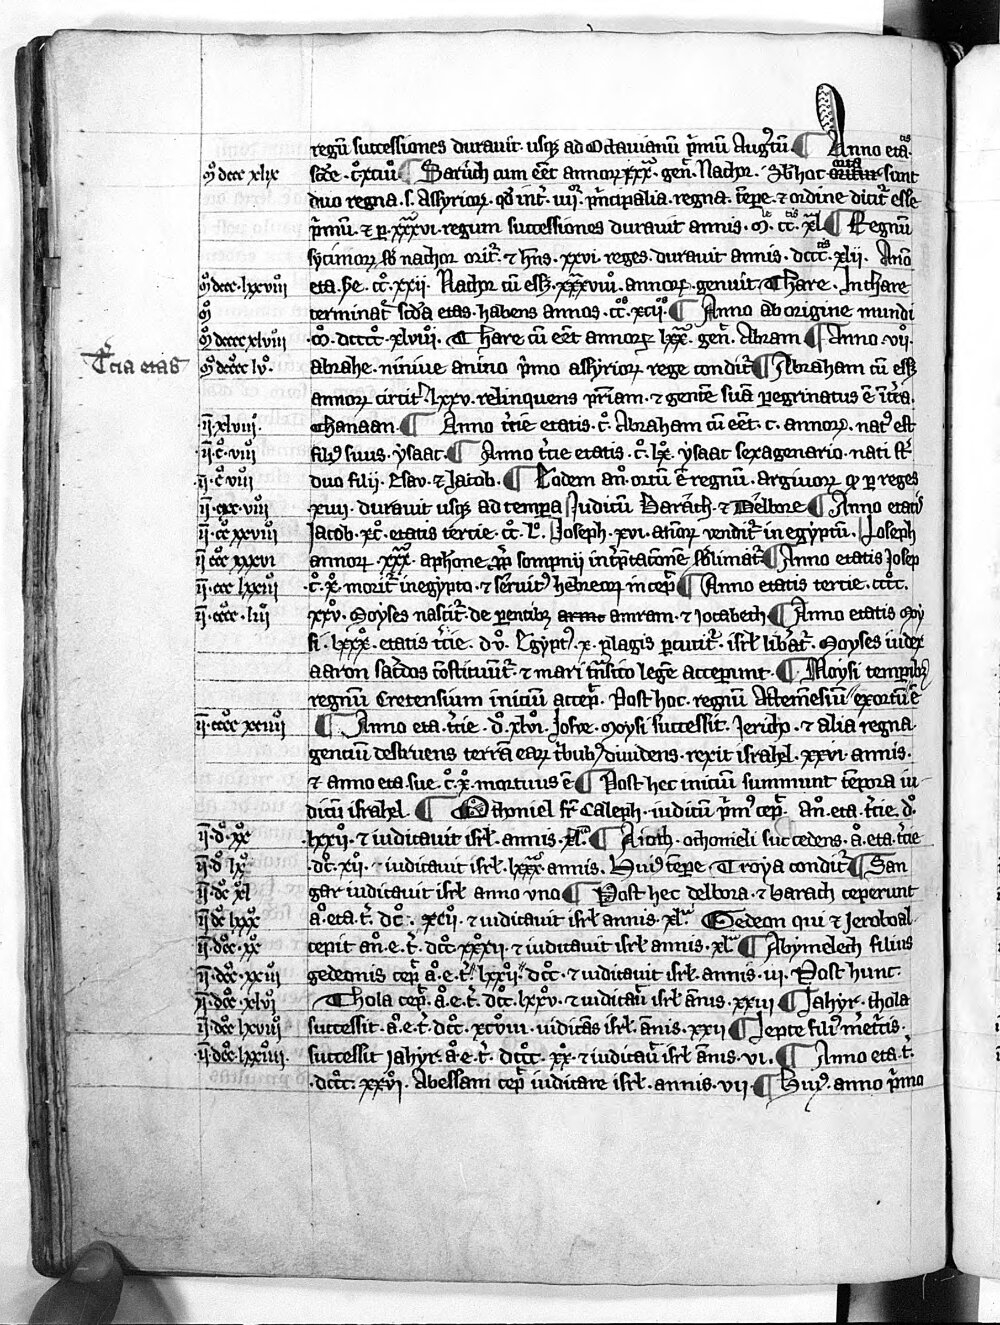 regnū successiones durauit usqȝ ad Octauianū pͥmū Augꝰtū ¶ Anno eta.
ɱ dccc xlix sc̄de . cͦ.xciiiͦ ¶ Saruch cum eēt annorꝝ xxx. gen̄. Nachor . Ab hoc orta sunt
duo regna .s. Assyriorꝝ. qd̓ int̄. iiii. pͥncipalia regna. tp̄e. ⁊ ordine dicit̄ esse
pͥmū. ⁊ ꝑ xxxvi. regum successiones durauit annis. ɱ. cc. xl ¶ Regnū
syciniorꝝ sb̓ nachor orit̄. ⁊ hn̄s. xxvi. reges. durauit annis. dcccc. xlii. Ano
ɱ dccc. lxxviii eta. sc̄e. cc. xxii. Nachor cū eēt xxxviii. annorꝝ. genuit Thare. In thare
ɱ terminat̄ sc̄da etas. habens annos. cc. xcii. ¶ Anno ab origine mundi
ɱ dcccc xlviii ɱ. dcccc. xlviii. Thare cū eēt annorꝝ lxx. gen̄. Abram ¶ Anno .vii.
T̓cia etas ɱ dcccc lv. abrahe. niniue a nino pͥmo assyriorꝝ rege condit̄ ¶ Abraham cū eēt
annorꝝ circit̄. lxxv. relinquens pr̄iam. ⁊ gentē suā ꝑegrinatus ē in t̄ra
.ii. xlviii. Chanaan. ¶ Anno t̓cie etatis. c. Abraham cū eēt. c. annorꝝ. natꝰ est
.ii. c. viii filiꝰ suus. ysaac. ¶ Anno t̓cie etatis. c. lx. ysaac sexagenario. nati st̄
.ii. c viii duo filii. Esau. ⁊ Iacob. ¶ Eodem an̄. ortū ē regnū. argiuorꝝ qͥ ꝑ reges
.ii. cxc. viii xiiii. durauit usqȝ ad tempora Iudicū Barach. ⁊ Delbore ¶ Anno etatis
.ii. cc xxviii Iacob. xc. etatis tercie. cc. l. Ioseph. xvi. annorꝝ vendit̄ in egyptū. Ioseph
ii ccc xxxvi annorꝝ. xxx. a pharone ꝓpt̄ sompnii int̓p̄tationē sb̓limat̄ ¶ Anno etatis Iosep
.ii. ccc lxxiii .c. x. morit̄ in egypto. ⁊ seruitꝰ hebreorꝝ incep̄ ¶ Anno etatis tercie. cccc.
.ii. cccc. liii xxv. Moyses nascit̄. de parentibꝫ amram. ⁊ Iocabeth ¶ Anno etatis Moy
si. lxxx. etatis t̓cie. dv. Egyptꝰ. x. plagis ꝑcutit̄. isrl̄ lib̓at̄. Moyses iudex
aaron sac̓dos cōstituūt̄. ⁊ mari trāsito legē acceperunt. ¶ Moysi temporibꝫ
regnū Cretensium iniciū accep̄. Post hoc. regnū Atteniesiū exortū ē
.ii. cccc xciiii ¶ Anno eta. t̓cie. d. xlvi. Iosue. Moysi successit. Iericho. ⁊ alia regna
gentiū destruens terrā earꝝ t̓bubꝰ diuidens. rexit israhel. xxvi. annis.
⁊ anno eta. sue. c. x. mortuus ē ¶ Post hec iniciū summunt tēpora iu-
dicū israhel. ¶ Othoniel fr̄ Caleph. iudicū pͥmꝰ cep̄. An̄. eta. t̓cie. d.
.ii. d. xx .lxxii. ⁊ iudicauit isrl̄. annis. xl. ¶ Aioth. othonieli succedens. a. eta. t̓cie
.ii. d lx .dc. xii. ⁊ iudicauit isrl̄. lxxx. annis. Huiꝰ tēpe. Troya condit̄ ¶ San
.ii. dc xl gar iudicauit isrl̄ anno vno ¶ Post hec delbora. ⁊ barach ceperunt
.ii. dc lxxx a. eta. t̄. dc. xcii. ⁊ iudicauit isrl̄ annis. xl. Gedeon qui ⁊ Ieroboal
.ii. dcc. xx cepit an̄. e. t̄. dcc. xxxii. ⁊ iudicauit isrl̄ annis. xl ¶ Abymelech filius
.ii. dcc. xxiii gedeonis cep̄ a. e. t̄. lxxii. dcc. ⁊ iudicauit isrl̄. annis. iii. Post hunc
.ii. dcc. xlvi Thola cep̄. a. e. t̄. dcc. lxxv. ⁊ iudicau̓ isrl̄ ānis. xxiii ¶ Iahyr. thola
.ii. dcc lxviii successit. a. e. t̄. dcc. xcviii. iudicās isrl̄. ānis. xxii ¶ Iepte filiꝰ met̓cis.
.ii. dcc. lxxiiii. successit Iahyr. a. e. t̄. dccc. xx. ⁊ iudicau̓ isrl̄ ānis. vi. ¶ Anno eta. t̄.
.dccc. xxvi. Abessam cep̄ iudicare isrl̄. annis. vii ¶ Huiꝰ. anno pͥmo